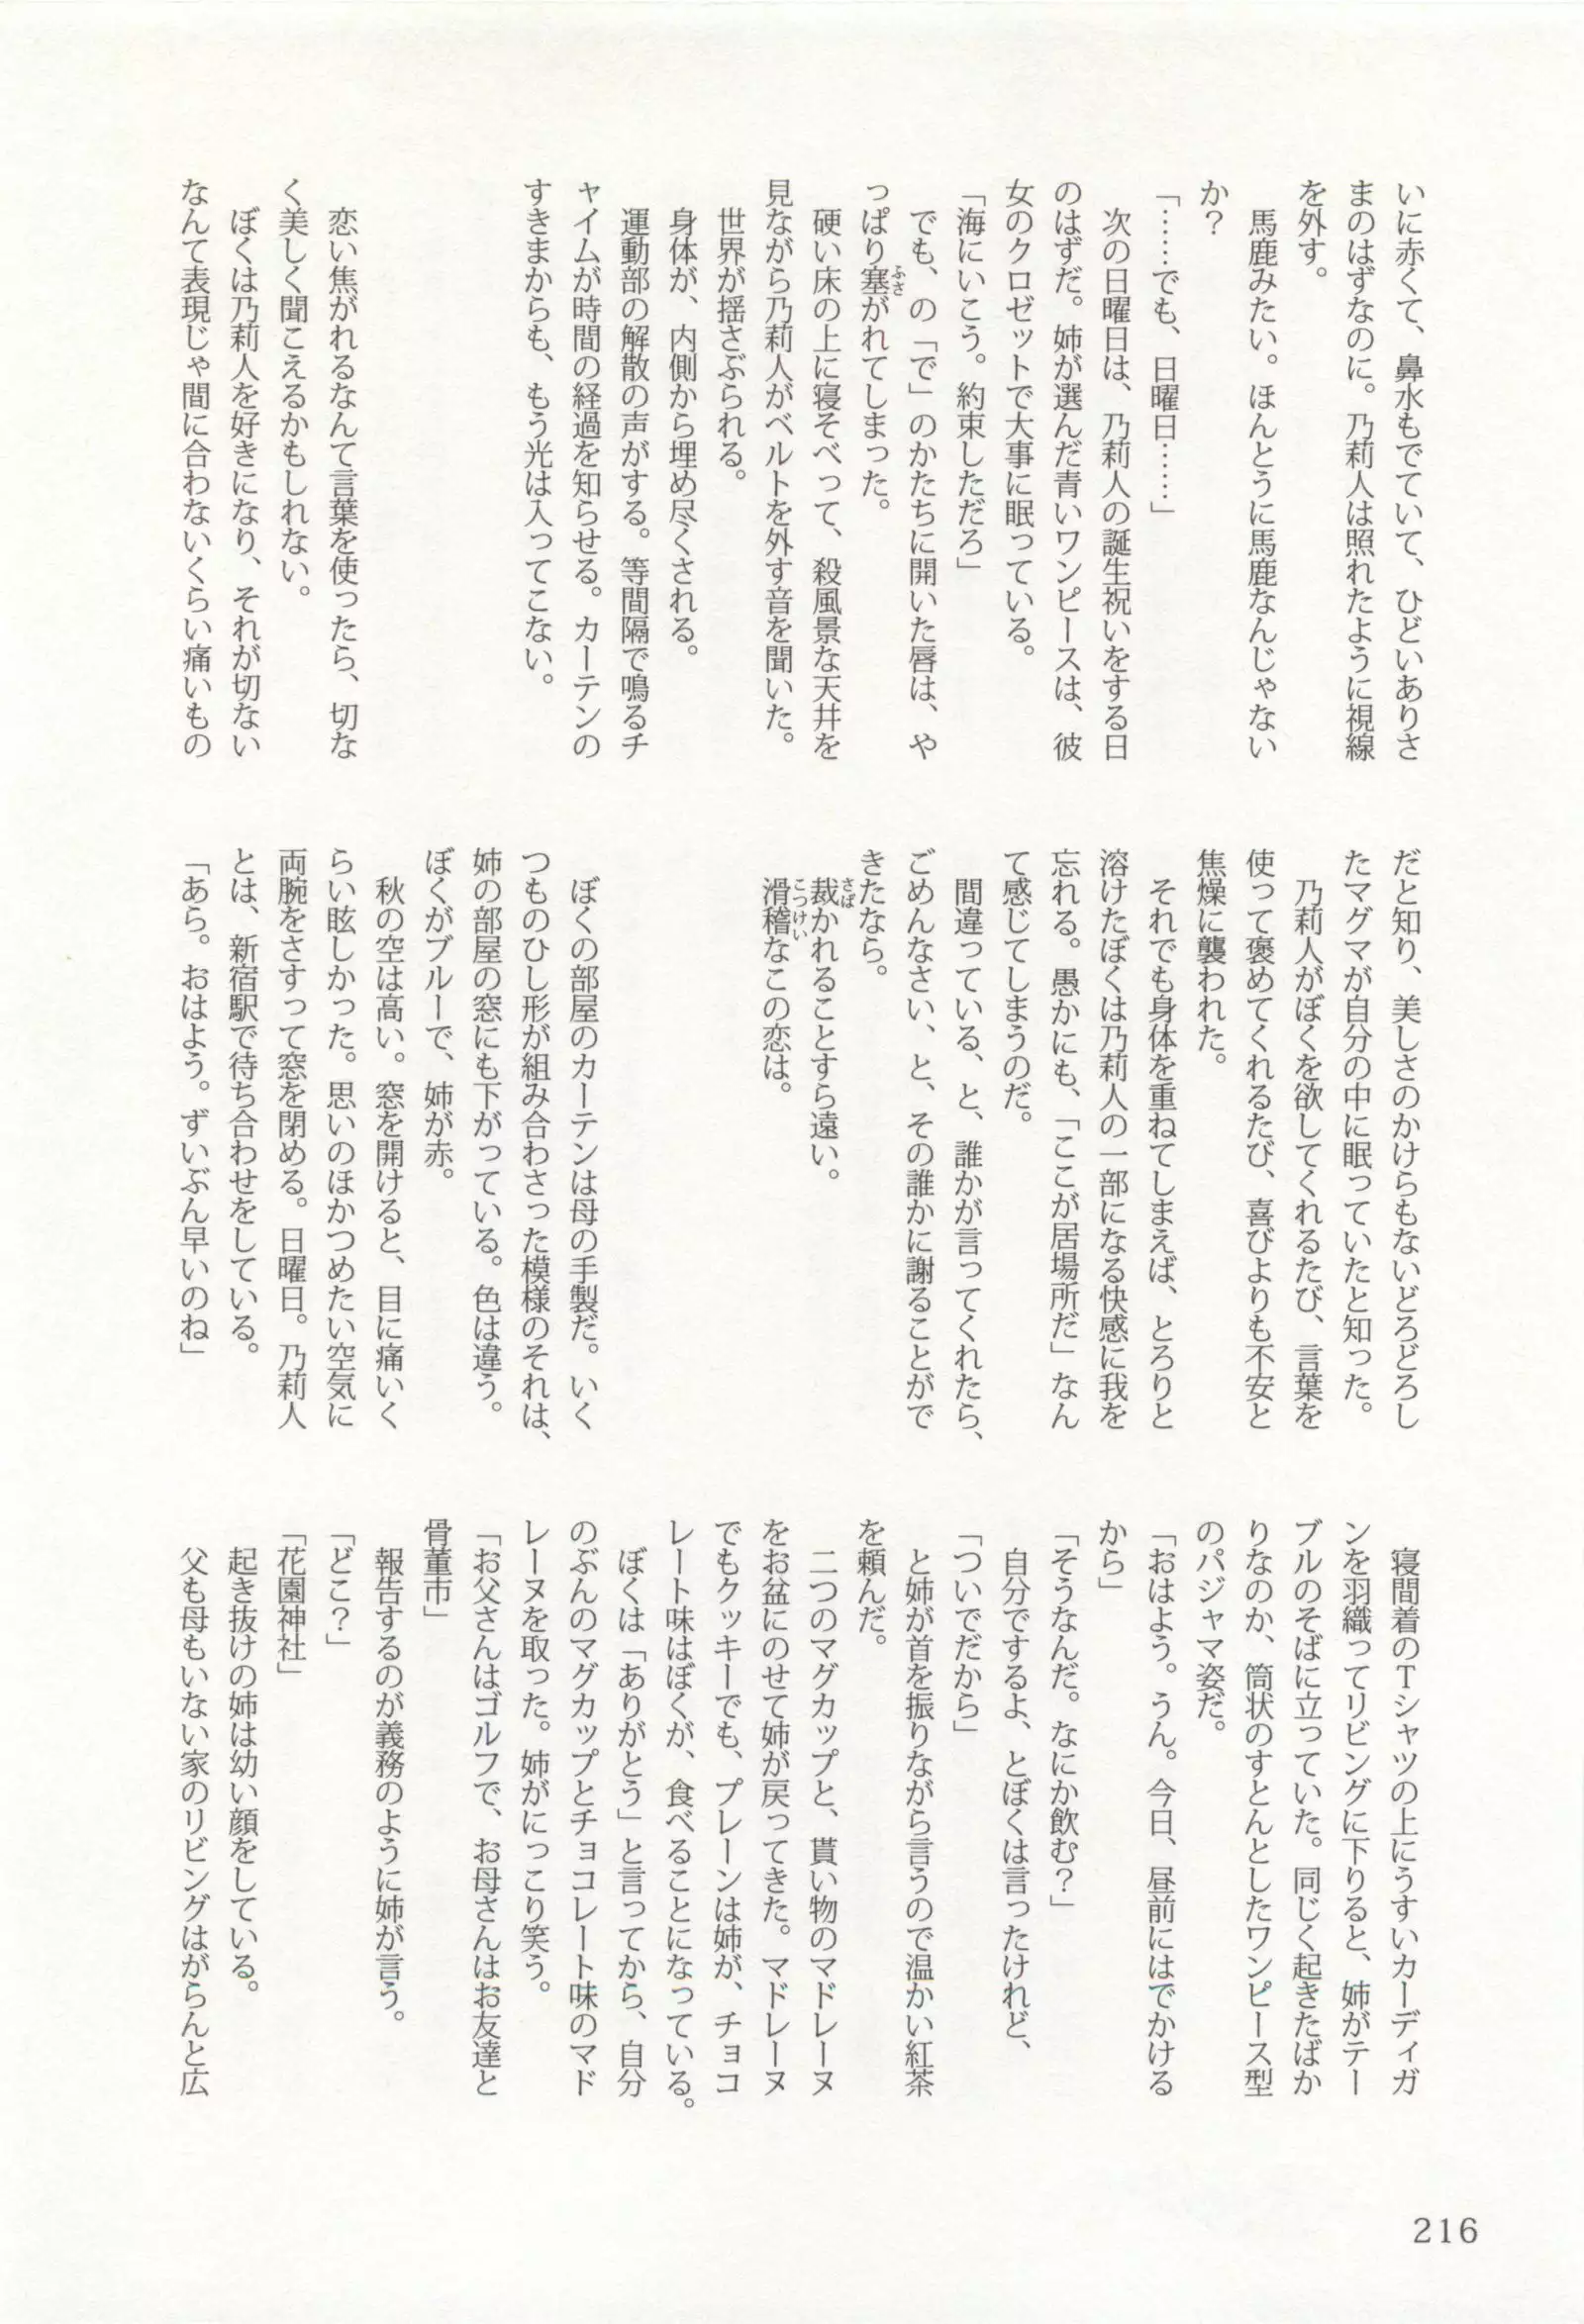 いに赤くて、鼻水もでていて、ひどいありさ
まのはずなのに。乃莉人は照れたように視線
を外す。
　馬鹿みたい。ほんとうに馬鹿なんじゃない
か？
「……でも、日曜日……」
　次の日曜日は、乃莉人の誕生祝いをする日
のはずだ。姉が選んだ青いワンピースは、彼
女のクロゼットで大事に眠っている。
「海にいこう。約束しただろ」
　でも、の「で」のかたちに開いた唇は、や
っぱり塞がれてしまった。
　硬い床の上に寝そべって、殺風景な天井を
見ながら乃莉人がベルトを外す音を聞いた。
　世界が揺さぶられる。
　身体が、内側から埋め尽くされる。
　運動部の解散の声がする。等間隔で鳴るチ
ャイムが時間の経過を知らせる。カーテンの
すきまからも、もう光は入ってこない。
　恋い焦がれるなんて言葉を使ったら、切な
く美しく聞こえるかもしれない。
　ぼくは乃莉人を好きになり、それが切ない
なんて表現じゃ間に合わないくらい痛いもの
だと知り、美しさのかけらもないどろどろし
たマグマが自分の中に眠っていたと知った。
　乃莉人がぼくを欲してくれるたび、言葉を
使って褒めてくれるたび、喜びよりも不安と
焦燥に襲われた。
　それでも身体を重ねてしまえば、とろりと
溶けたぼくは乃莉人の一部になる快感に我を
忘れる。愚かにも、「ここが居場所だ」なん
て感じてしまうのだ。
　間違っている、と、誰かが言ってくれたら、
ごめんなさい、と、その誰かに謝ることがで
きたなら。
　裁かれることすら遠い。
　滑稽なこの恋は。
　ぼくの部屋のカーテンは母の手製だ。いく
つものひし形が組み合わさった模様のそれは、
姉の部屋の窓にも下がっている。色は違う。
ぼくがブルーで、姉が赤。
　秋の空は高い。窓を開けると、目に痛いく
らい眩しかった。思いのほかつめたい空気に
両腕をさすって窓を閉める。日曜日。乃莉人
とは、新宿駅で待ち合わせをしている。
「あら。おはよう。ずいぶん早いのね」
　寝間着のＴシャツの上にうすいカーディガ
ンを羽織ってリビングに下りると、姉がテー
ブルのそばに立っていた。同じく起きたばか
りなのか、筒状のすとんとしたワンピース型
のパジャマ姿だ。
「おはよう。うん。今日、昼前にはでかける
から」
「そうなんだ。なにか飲む？」
　自分でするよ、とぼくは言ったけれど、
「ついでだから」
　と姉が首を振りながら言うので温かい紅茶
を頼んだ。
　二つのマグカップと、貰い物のマドレーヌ
をお盆にのせて姉が戻ってきた。マドレーヌ
でもクッキーでも、プレーンは姉が、チョコ
レート味はぼくが、食べることになっている。
　ぼくは「ありがとう」と言ってから、自分
のぶんのマグカップとチョコレート味のマド
レーヌを取った。姉がにっこり笑う。
「お父さんはゴルフで、お母さんはお友達と
骨董市」
　報告するのが義務のように姉が言う。
「どこ？」
「花園神社」
　起き抜けの姉は幼い顔をしている。
　父も母もいない家のリビングはがらんと広
216